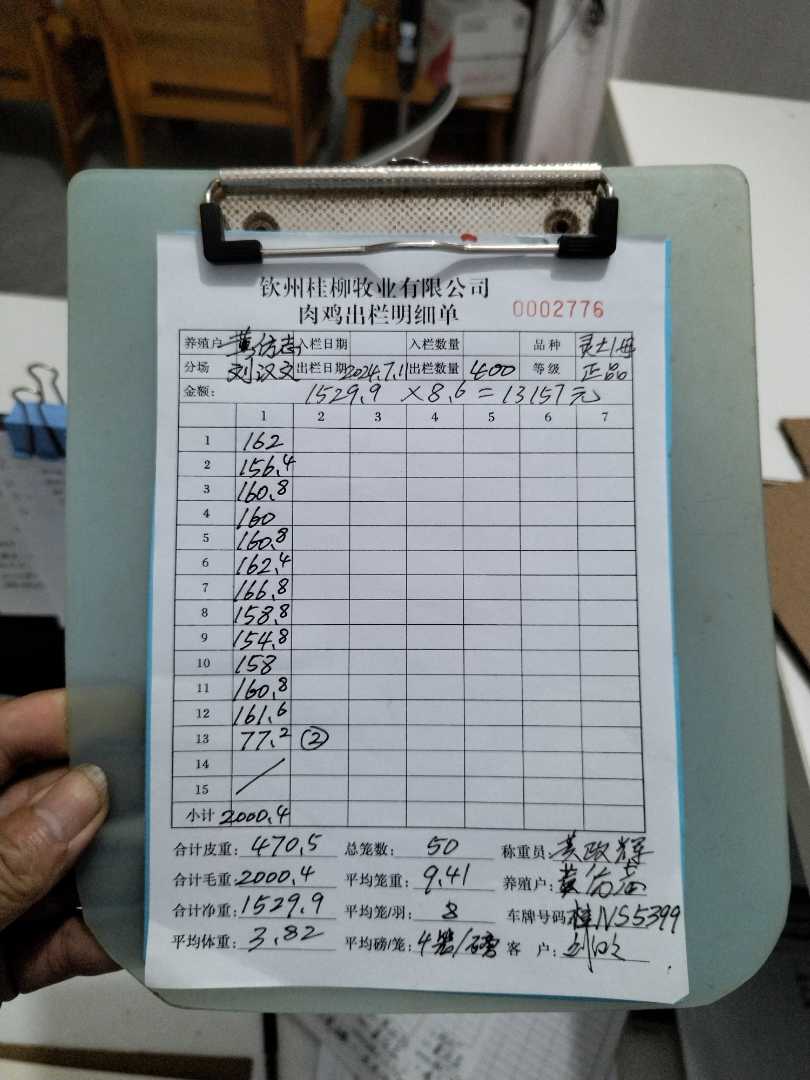 钦州桂柳牧业有限公司
肉鸡出栏明细单 0002776
养殖户 入栏日期 入栏数量 品种
分场 刘汉文 出栏日期 2024.7.11 出栏数量 400 等级 正品
金额: 1529.9 ×8.6=13157元
1 2 3 4 5 6 7
1 162
2 156.4
3 160.8
4 160
5 160.8
6 162.4
7 166.8
8 158.8
9 154.8
10 158
11 160.8
12 161.6
13 77.2 ②
14
15
小计 2000.4
合计皮重: 470.5 总笼数: 50 称重员: 黄政辉
合计毛重: 2000.4 平均笼重: 9.41 养殖户:
合计净重: 1529.9 平均笼/羽: 8 车牌号码 桂NS5399
平均体重: 3.82 平均磅/笼: 4笼/磅 客 户: